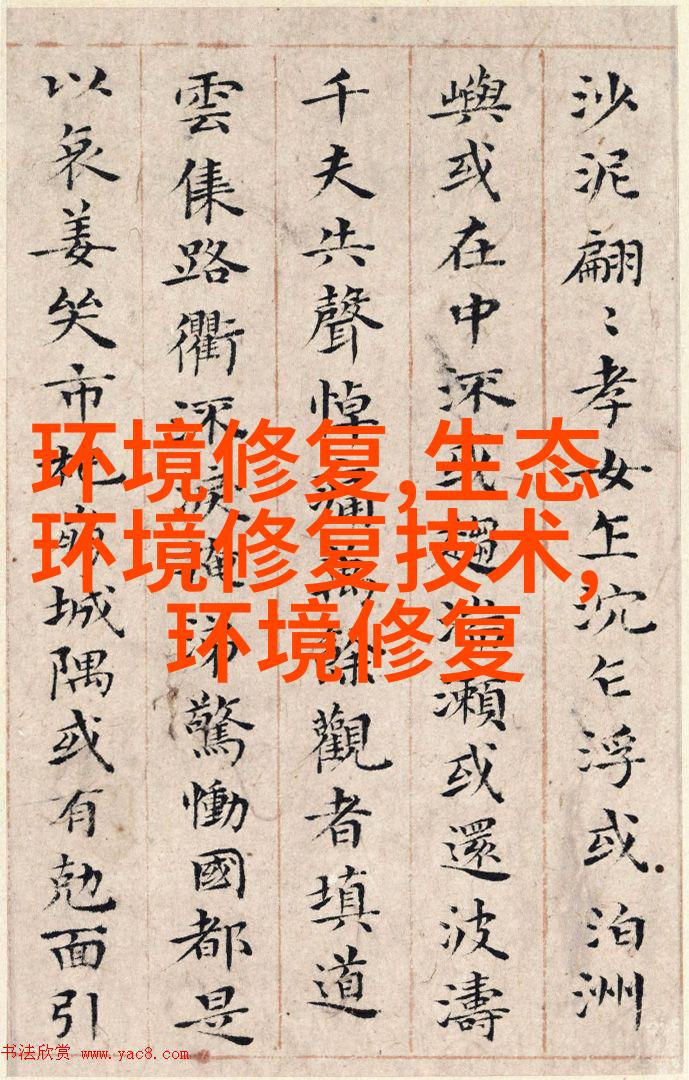 沙泥翩〻孝女乍沉乍浮或泊洲
嶼或在中深或趨湍瀨或還波濤
千夫共聲悼痛萬餘觀者填道
雲集路衢淚掩涕驚慟國都是
以哀姜哭市杞崩城隅或有勊面引
环境修复,生态
环境修复技术,
环境修复
书法欣赏 www.yac8.com